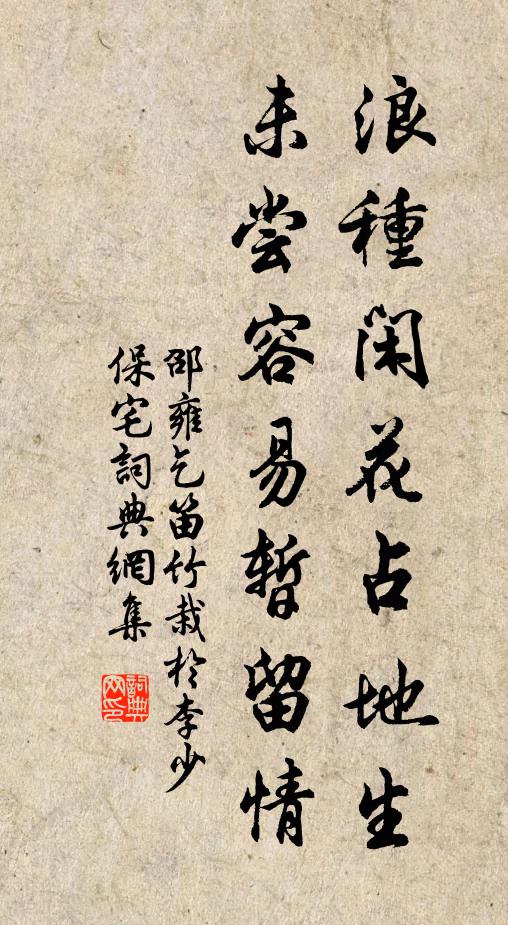 浪種閑花占地生
未尝容易暫留情
邵雍乞笛竹栽於李少
保宅詞典網集
詞典
网印